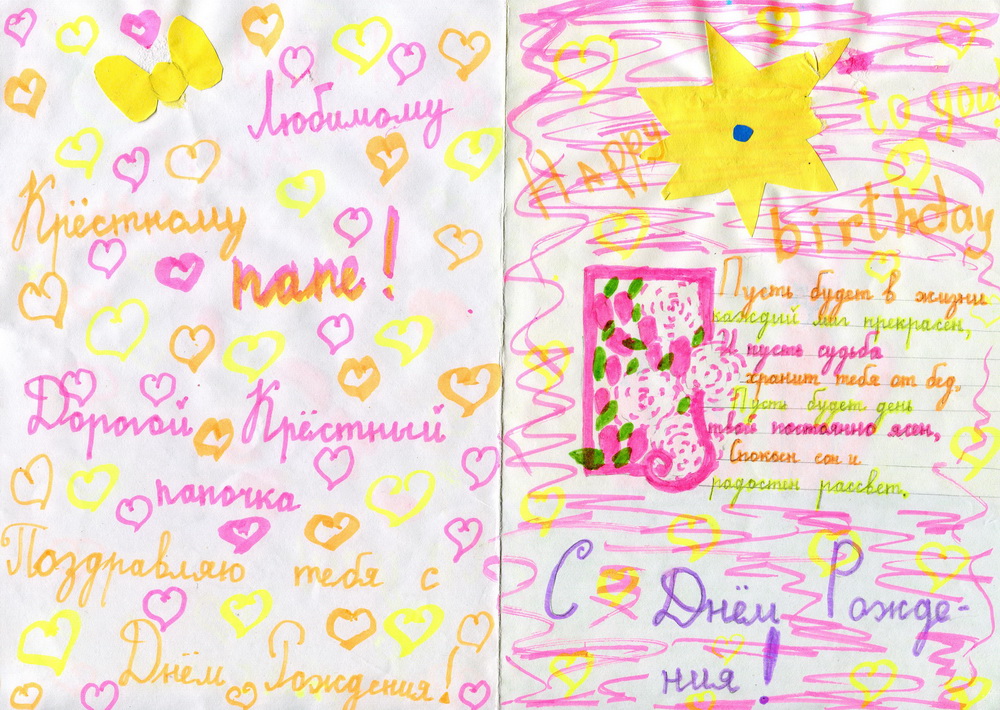 Любимому
Крёстному
папе!
Дорогой Крёстный
папочка
Поздравляю тебя с
Днём Рождения!
Happy to you
birthday
Пусть будет в жизни
каждый миг прекрасен,
И пусть судьба
хранит тебя от бед,
Пусть будет день
твой постоянно ясен,
Спокоен сон и
радостен рассвет.
С Днём Рожде-
ния!